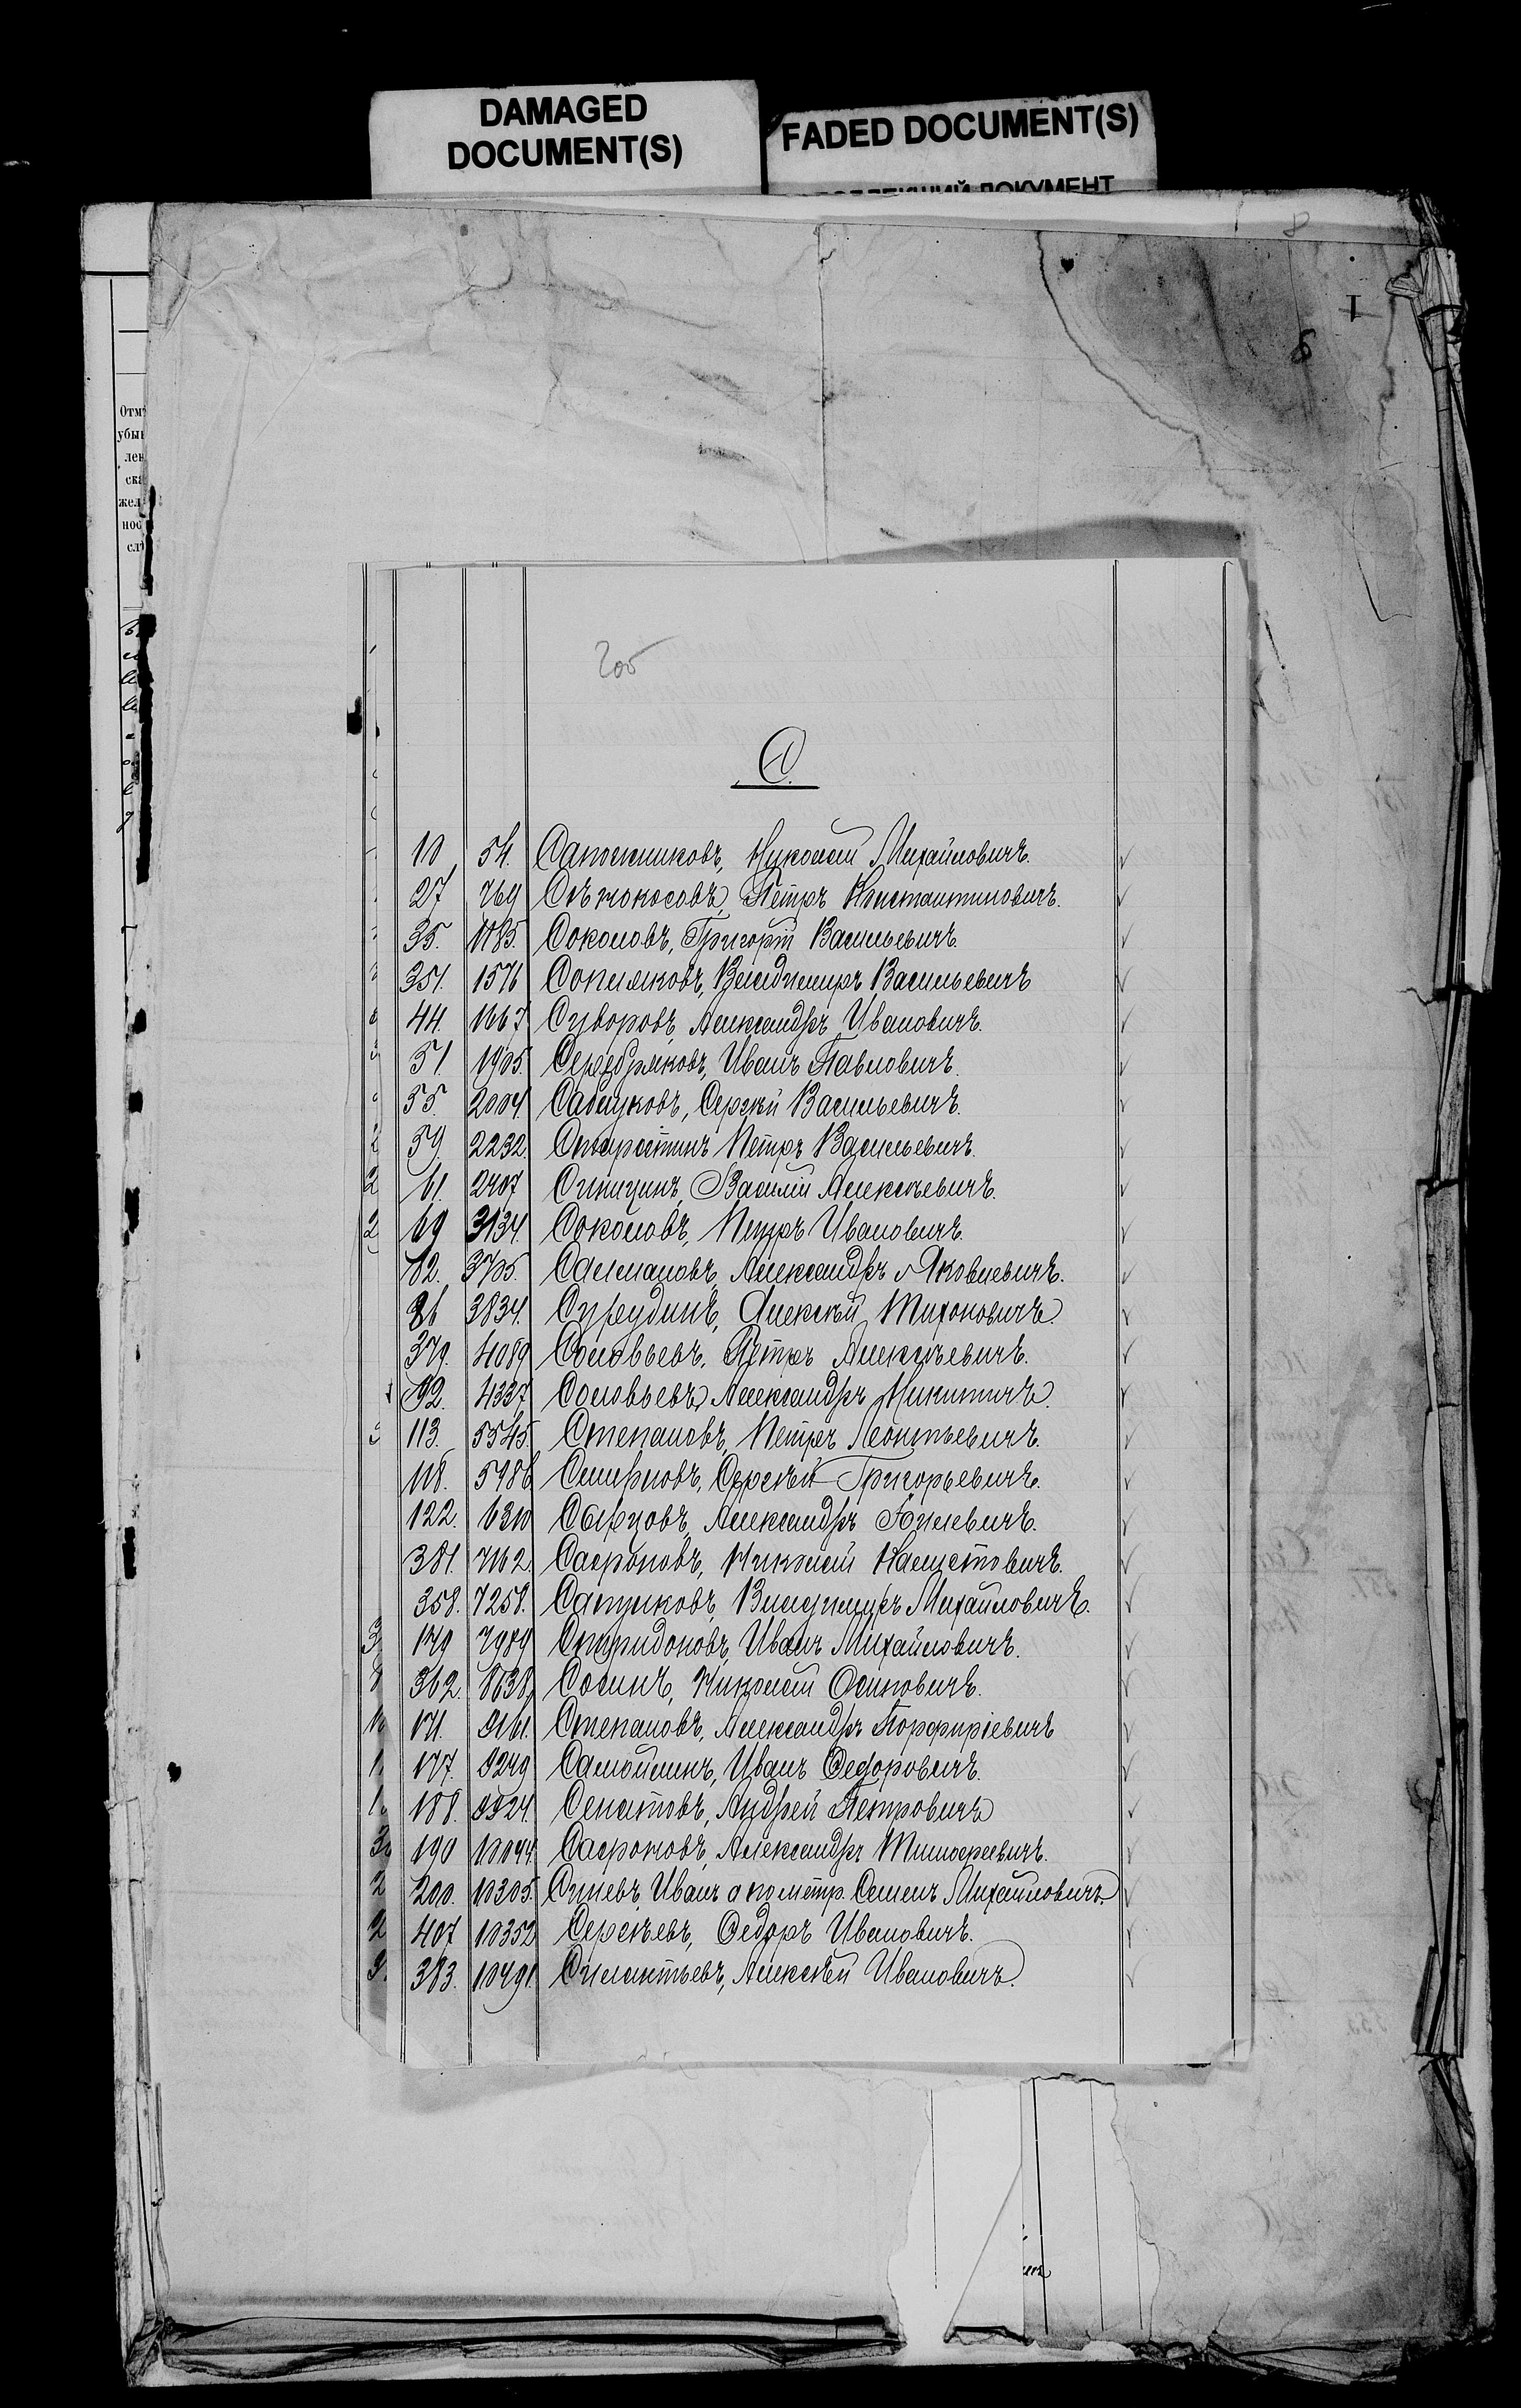 DAMAGED
DOCUMENT(S)
FADED DOCUMENT(S)
ДОКУМЕНТ
8
I
8
Отм
убы
лен
ска
жел
нос
сл
205
С.
10 54. Сапожниковъ, Николай Михайловичъ. ✓
27 769 Сѣнокосовъ, Петръ Константиновичъ. ✓
35. 1185. Соколовъ, Григорій Васильевичъ. ✓
351. 1576 Сопляковъ, Владимиръ Васильевичъ ✓
44. 1667 Суворовъ, Александръ Ивановичъ. ✓
51. 1905. Серебряковъ, Иванъ Павловичъ. ✓
55. 2004. Сабуровъ, Сергѣй Васильевичъ. ✓
59. 2232. Старостинъ Петръ Васильевичъ. ✓
61. 2407 Синицинъ, Василій Алексѣевичъ. ✓
69 3134. Соколовъ, Петръ Ивановичъ. ✓
82. 3705. Салмановъ, Александръ Яковлевичъ. ✓
86 3834. Сурудинъ, Алексѣй Тихоновичъ. ✓
379. 4089 Соловьевъ, Петръ Алексѣевичъ. ✓
92. 4337 Соловьевъ, Александръ Никитичъ. ✓
113. 5545. Степановъ, Петръ Леонтьевичъ. ✓
118. 5986 Смирновъ, Сергѣй Григорьевичъ. ✓
122. 6310 Сырцовъ, Александръ Юлиевичъ. ✓
381. 7162. Сафроновъ, Николай ✓
358. 7258. Сапунковъ, Владимиръ Михайловичъ. ✓
179 7989 Спиридоновъ, Иванъ Михайловичъ. ✓
362. 8638, Сосинъ, Николай Осиповичъ. ✓
171. 9161. Степановъ, Александръ Порфиріевичъ ✓
177. 9249 Самойлинъ, Иванъ Федоровичъ. ✓
188. 9924. Сенатовъ, Андрей Петровичъ ✓
190 10044 Сафроновъ, Александръ Тимофеевичъ. ✓
200. 10305. Синевъ, Иванъ а по метр. Семенъ Михайловичъ. ✓
407 10352 Сергѣевъ, Федоръ Ивановичъ. ✓
383. 10491. Силантьевъ, Алексѣй Ивановичъ. ✓